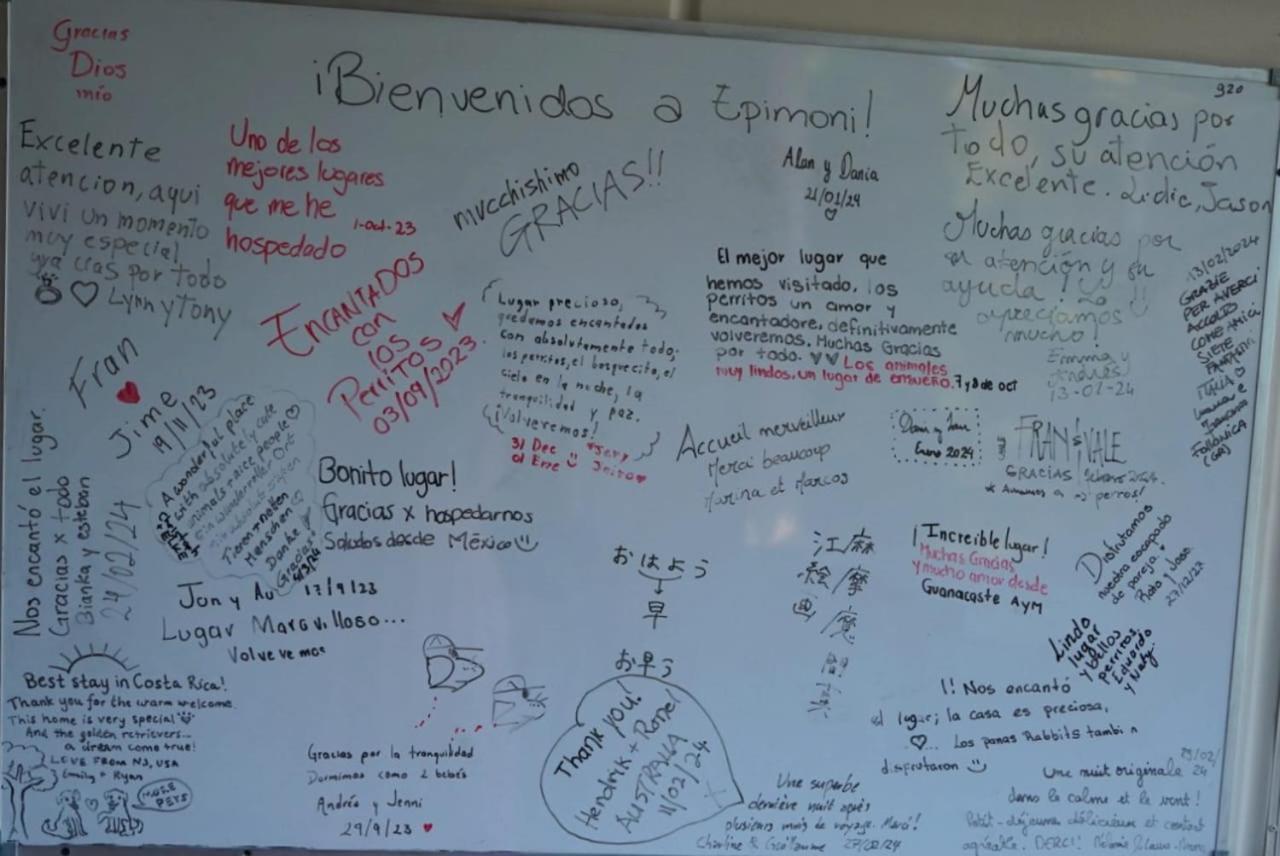 Gracias
Dios
mío
¡Bienvenidos a Epimoni!
920
Muchas gracias por
todo, su atención
Excelente. Lidic, Jason
Excelente
atencion, aqui
vivi un momento
muy especial
gracias por todo
Lynn y Tony
Uno de los
mejores lugares
que me he
hospedado
1-oct-23
mucchishimo
GRACIAS!!
Alan y Dania
21/01/24
Muchas gracias por
su atención y su
ayuda! Lo
apreciamos
mucho!
Emma y
Andrés
13-02-24
13/02/2024
GRAZIE
PER AVERCI
ACCOLTO
COME AMICI
SIETE
FANTASTICI
ITALIA
FOLLONICA
(GR)
ENCANTADOS
con
los
Perritos
03/09/2023
Lugar precioso,
quedamos encantados
con absolutamente todo,
los perritos, el bosquecito, el
cielo en la noche, la
tranquilidad y paz.
¡Volveremos!
31 Dec
01 Ene
El mejor lugar que
hemos visitado, los
perritos un amor y
encantadore, definitivamente
volveremos. Muchas Gracias
por todo. Los animales
muy lindos, un lugar de ensueño. 7 y 8 de oct
Fran
Jime
19/11/23
A wonderful place
with absolutely cute
animals + nice people
Ein wundervoller Ort
mit absolut süßen
Tieren + netten
Menschen
Danke
Gracias
Nos encantó el lugar.
Gracias x todo
Bianka y esteban
24/02/24
Bonito lugar!
Gracias x hospedarnos
Saludos desde México
Accueil merveilleux
Merci beaucoup
Marina et Marcos
Enero 2024
FRAN & VALE
GRACIAS febrero 2024.
* Amamos a perros!
Jon y Au 17/9/23
Lugar Maravilloso...
Volveremos
おはよう
早
お早う
江麻
絵摩
画魔
¡Increible lugar!
Muchas Gracias
y mucho amor desde
Guanacaste AyM
Disfrutamos
nuestra escapada
de pareja
27/12/23
Lindo
lugar
y bellos
perritos,
Eduardo
y Naty.
Best stay in Costa Rica!
Thank you for the warm welcome.
This home is very special
And the golden retrievers...
a dream come true!
LOVE FROM NJ, USA
Emily + Ryan
MORE
PETS
Gracias por la tranquilidad
Dormimos como 2 bebés
Andrés y Jenni
29/9/23
Thank you!
Hendrik + Ronel
AUSTRALIA
11/02/24
!! Nos encantó
el lugar; la casa es preciosa,
... Los panas Rabbits también
disfrutaron
Une superbe
dernière nuit après
plusieurs mois de voyage. Merci!
Charline & Guillaume 27/02/24
Une nuit originale
dans le calme et le vent!
Petit-déjeuner délicieux et contact
agréable. MERCI!